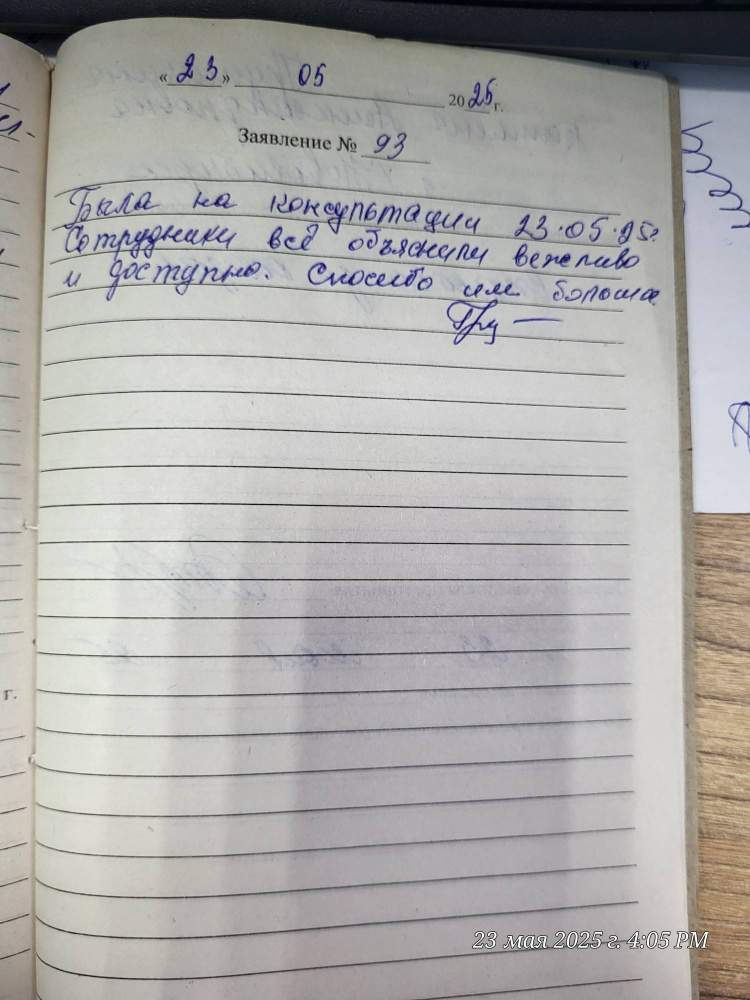 «23» 05 2025 г.
Заявление № 93
Была на консультации 23.05.25г.
Сотрудники всё объяснили вежливо
и доступно. Спасибо им большое
г.
23 мая 2025 г. 4:05 PM